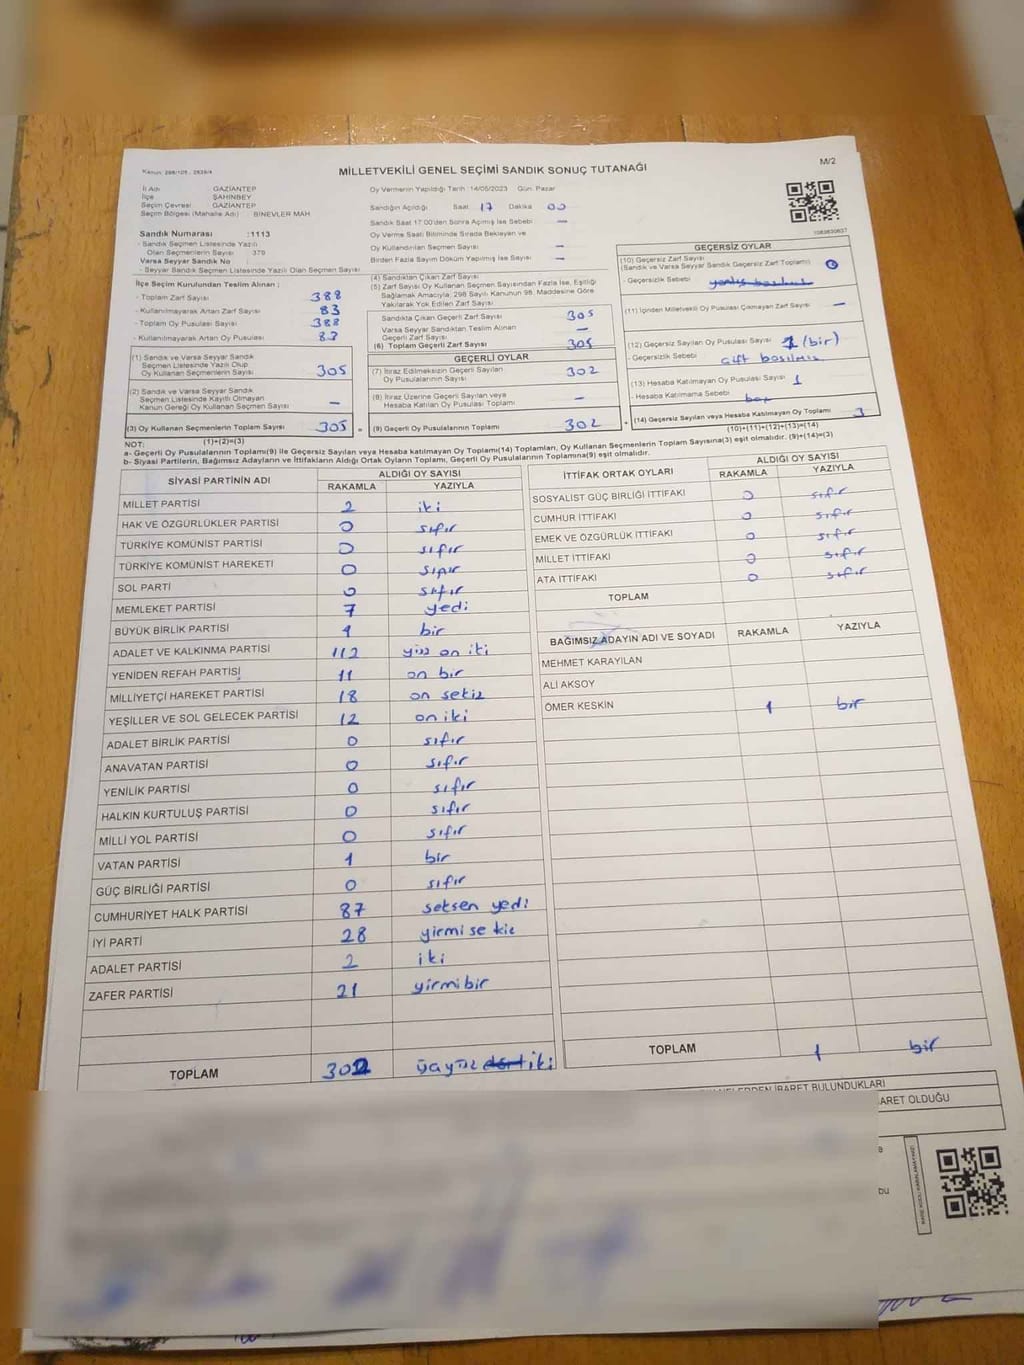 Kanun: 298/105, 2839/4
MİLLETVEKİLİ GENEL SEÇİMİ SANDIK SONUÇ TUTANAĞI
M/2
İl Adı GAZİANTEP
İlçe ŞAHİNBEY
Seçim Çevresi GAZİANTEP
Seçim Bölgesi (Mahalle Adı) BİNEVLER MAH
Oy Vermenin Yapıldığı Tarih :14/05/2023 Gün: Pazar
Sandığın Açıldığı Saat 17 Dakika 00
Sandık Saat 17:00'den Sonra Açımış İse Sebebi —
Oy Verme Saati Bitiminde Sırada Bekleyen ve
Oy Kullandırılan Seçmen Sayısı —
Birden Fazla Sayım Döküm Yapılmış İse Sayısı —
Sandık Numarası :1113
- Sandık Seçmen Listesinde Yazılı
Olan Seçmenlerin Sayısı 379
Varsa Seyyar Sandık No
- Seyyar Sandık Seçmen Listesinde Yazılı Olan Seçmen Sayısı
İlçe Seçim Kurulundan Teslim Alınan ;
- Toplam Zarf Sayısı 388
- Kullanılmayarak Artan Zarf Sayısı 83
- Toplam Oy Pusulası Sayısı 388
- Kullanılmayarak Artan Oy Pusulası 83
(1) Sandık ve Varsa Seyyar Sandık
Seçmen Listesinde Yazılı Olup
Oy Kullanan Seçmenlerin Sayısı 305
(2) Sandık ve Varsa Seyyar Sandık
Seçmen Listesinde Kayıtlı Olmayan
Kanun Gereği Oy Kullanan Seçmen Sayısı —
(3) Oy Kullanan Seçmenlerin Toplam Sayısı 305 =
(1)+(2)=(3)
(4) Sandıktan Çıkan Zarf Sayısı
(5) Zarf Sayısı Oy Kullanan Seçmen Sayısından Fazla İse, Eşitliği
Sağlamak Amacıyla, 298 Sayılı Kanunun 98. Maddesine Göre
Yakılarak Yok Edilen Zarf Sayısı
Sandıkta Çıkan Geçerli Zarf Sayısı 305
Varsa Seyyar Sandıktan Teslim Alınan
Geçerli Zarf Sayısı —
(6) Toplam Geçerli Zarf Sayısı 305
GEÇERLİ OYLAR
(7) İtiraz Edilmeksizin Geçerli Sayılan
Oy Pusulalarının Sayısı 302
(8) İtiraz Üzerine Geçerli Sayılan veya
Hesaba Katılan Oy Pusulası Toplamı —
(9) Geçerli Oy Pusulalarının Toplamı 302 +
1083630837
GEÇERSİZ OYLAR
(10) Geçersiz Zarf Sayısı
(Sandık ve Varsa Seyyar Sandık Geçersiz Zarf Toplamı)
- Geçersizlik Sebebi yanlış basılmış
(11) İçinden Milletvekili Oy Pusulası Çıkmayan Zarf Sayısı —
(12) Geçersiz Sayılan Oy Pusulası Sayısı 1 (bir)
- Geçersizlik Sebebi çift basılmış
(13) Hesaba Katılmayan Oy Pusulası Sayısı 1
- Hesaba Katılmama Sebebi
(14) Geçersiz Sayılan veya Hesaba Katılmayan Oy Toplamı 3
(10)+(11)+(12)+(13)=(14)
NOT:
a- Geçerli Oy Pusulalarının Toplamı(9) ile Geçersiz Sayılan veya Hesaba katılmayan Oy Toplamı(14) Toplamları, Oy Kullanan Seçmenlerin Toplam Sayısına(3) eşit olmalıdır. (9)+(14)=(3)
b- Siyasi Partilerin, Bağımsız Adayların ve İttifakların Aldığı Ortak Oyların Toplamı, Geçerli Oy Pusulalarının Toplamına(9) eşit olmalıdır.
SİYASİ PARTİNİN ADI ALDIĞI OY SAYISI
RAKAMLA YAZIYLA
MİLLET PARTİSİ 2 iki
HAK VE ÖZGÜRLÜKLER PARTİSİ 0 sıfır
TÜRKİYE KOMÜNİST PARTİSİ 0 sıfır
TÜRKİYE KOMÜNİST HAREKETİ 0 sıfır
SOL PARTİ 0 sıfır
MEMLEKET PARTİSİ 7 yedi
BÜYÜK BİRLİK PARTİSİ 1 bir
ADALET VE KALKINMA PARTİSİ 112 yüz on iki
YENİDEN REFAH PARTİSİ 11 on bir
MİLLİYETÇİ HAREKET PARTİSİ 18 on sekiz
YEŞİLLER VE SOL GELECEK PARTİSİ 12 on iki
ADALET BİRLİK PARTİSİ 0 sıfır
ANAVATAN PARTİSİ 0 sıfır
YENİLİK PARTİSİ 0 sıfır
HALKIN KURTULUŞ PARTİSİ 0 sıfır
MİLLİ YOL PARTİSİ 0 sıfır
VATAN PARTİSİ 1 bir
GÜÇ BİRLİĞİ PARTİSİ 0 sıfır
CUMHURİYET HALK PARTİSİ 87 seksen yedi
İYİ PARTİ 28 yirmi sekiz
ADALET PARTİSİ 2 iki
ZAFER PARTİSİ 21 yirmi bir
TOPLAM 302 üçyüz dört iki
İTTİFAK ORTAK OYLARI ALDIĞI OY SAYISI
RAKAMLA YAZIYLA
SOSYALİST GÜÇ BİRLİĞİ İTTİFAKI 0 sıfır
CUMHUR İTTİFAKI 0 sıfır
EMEK VE ÖZGÜRLÜK İTTİFAKI 0 sıfır
MİLLET İTTİFAKI 0 sıfır
ATA İTTİFAKI 0 sıfır
TOPLAM
BAĞIMSIZ ADAYIN ADI VE SOYADI RAKAMLA YAZIYLA
MEHMET KARAYILAN
ALİ AKSOY
ÖMER KESKİN 1 bir
TOPLAM 1 bir
İBARET BULUNDUKLARI
ARET OLDUĞU
bu